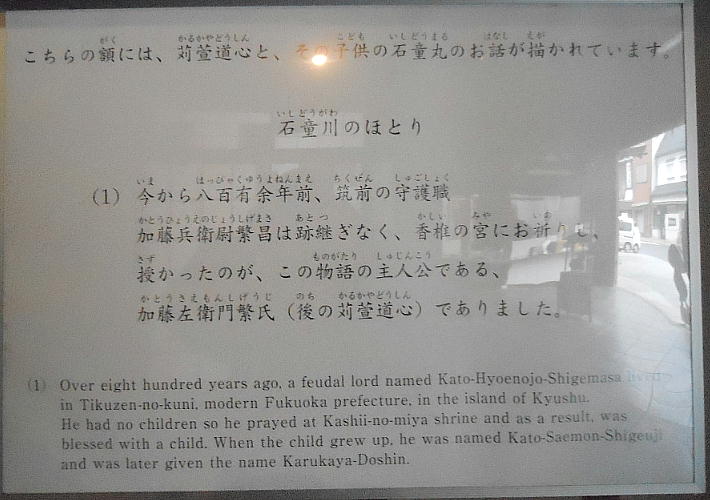 こちらの額には、苅萱道心と、その子供の石童丸のお話が描かれています。
石童川のほとり
(1) 今から八百有余年前、筑前の守護職
加藤兵衛尉繁昌は跡継ぎなく、香椎の宮にお祈りし、
授かったのが、この物語の主人公である、
加藤左衛門繁氏(後の苅萱道心)でありました。
(1) Over eight hundred years ago, a feudal lord named Kato-Hyoenojo-Shigemasa lived
in Tikuzen-no-kuni, modern Fukuoka prefecture, in the island of Kyushu.
He had no children so he prayed at Kashii-no-miya shrine and as a result, was
blessed with a child. When the child grew up, he was named Kato-Saemon-Shigeuji
and was later given the name Karukaya-Doshin.